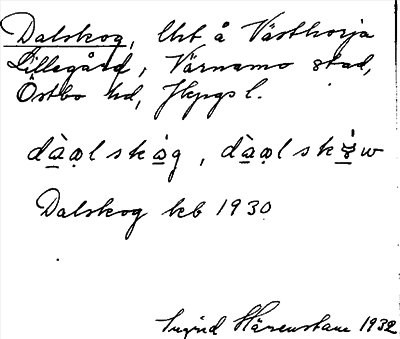 Dalskog, lht å Västhorja
Lillegård, Värnamo stad,
Östbo hd, Jkpgs l.
dàal skåg, dàal sk w
Dalskog kb 1930
Ingrid 1932